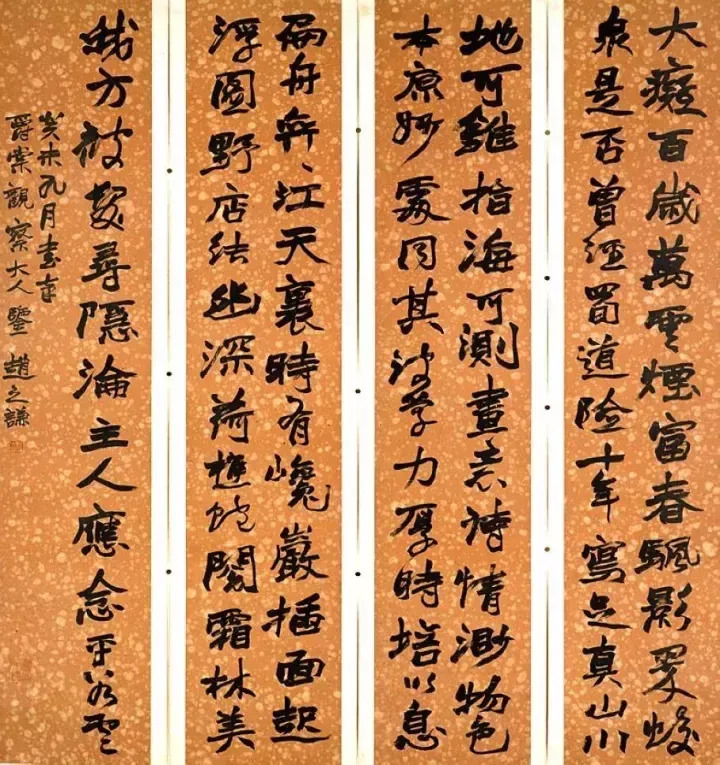 大癡百歲萬雲煙富春飄影
泉是否曾經蜀道險十年寫足真山川
地可雖指海可測畫意詩情渺物色
本原妙處同其波學力厚時培以息
扁舟奔〻江天裏時有巉巖插面起
浮圖野店結幽深荷樵蛇閣霜林美
我方被髮尋隱淪主人應念平
癸未九月書奉
爵棠觀察大人鑒 趙之謙